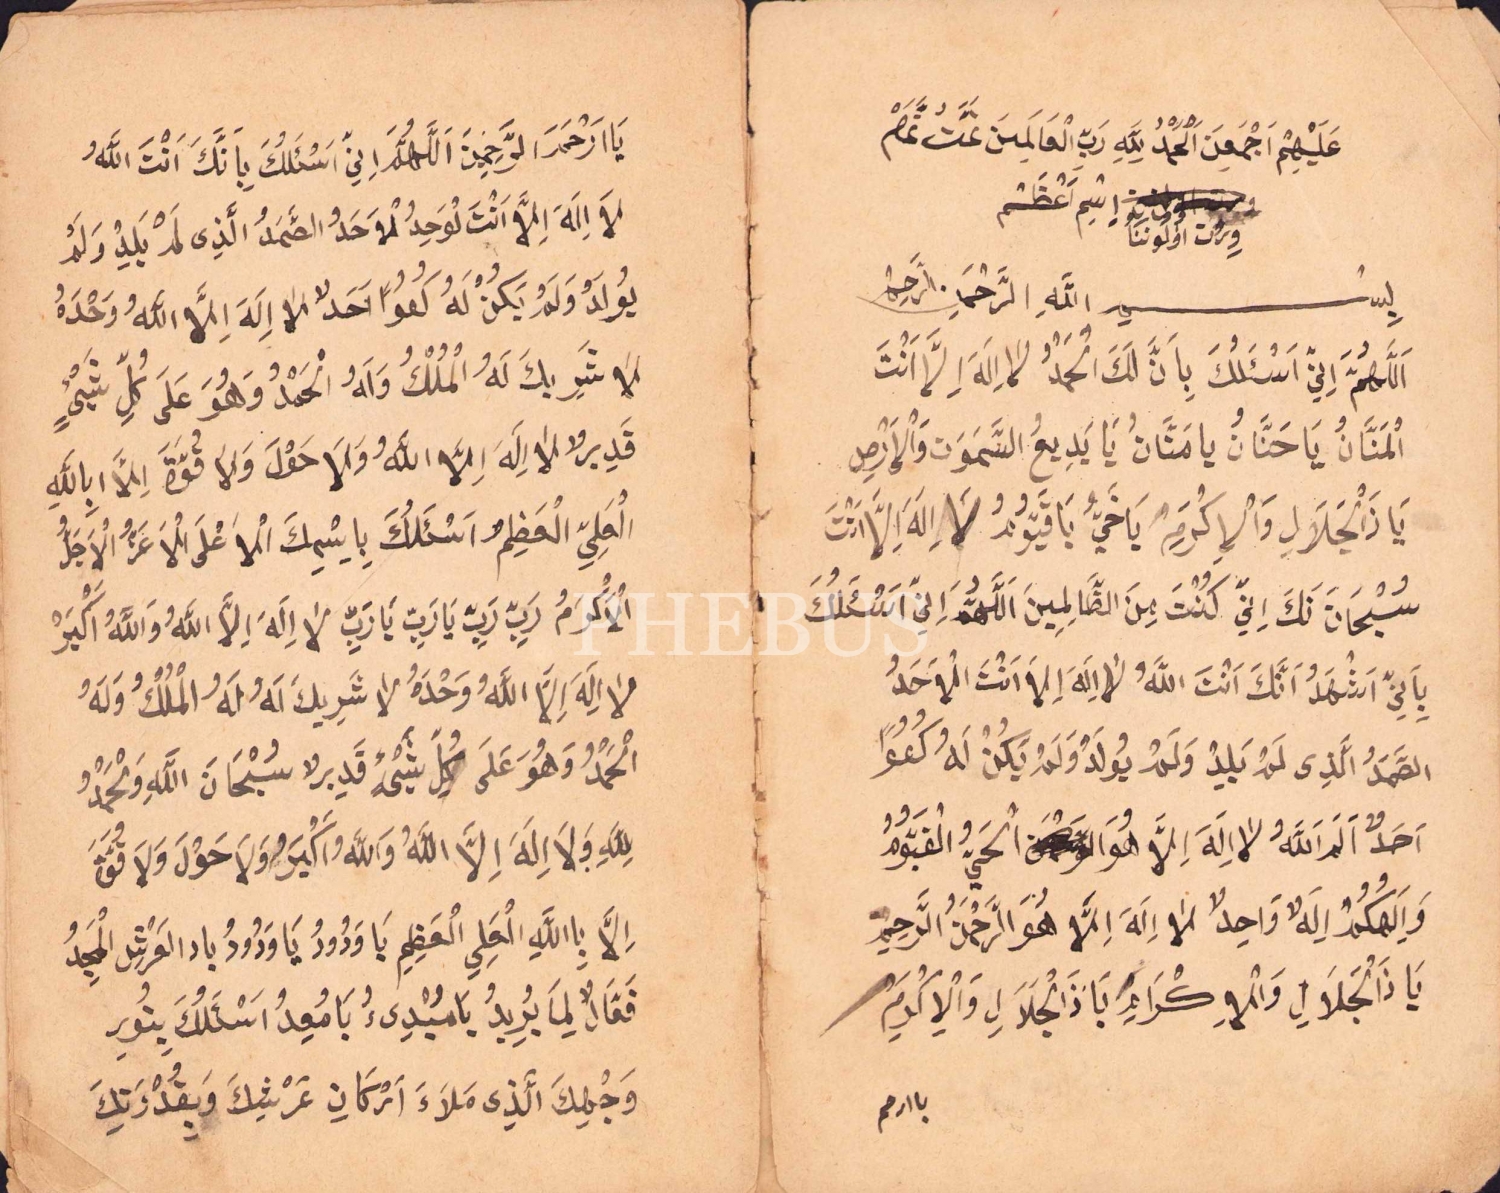 عَلَيْهِمْ اَجْمَعِينَ اَلْحَمْدُ لِلّٰهِ رَبِّ الْعَالَمِينَ تَمَّتْ تَمَّمْ
اِسْمِ اَعْظَمْ
وِرْت اوُلُونَنَا
بِسْمِ اللّٰهِ الرَّحْمَنِ الرَّحِيمْ
اَللَّهُمَّ اِنِّي اَسْئَلُكَ بِاَنَّ لَكَ الْحَمْدُ لَا اِلَهَ اِلَّا اَنْتَ
الْمَنَّانُ يَا حَنَّانُ يا مَنَّانُ يَا بَدِيعُ السَّمَوَتِ وَالْاَرْضِ
يَا ذَالْجَلَالِ وَالْاِكْرَمِ يَا حَيُّ يَا قَيُّومُ لَا اِلَهَ اِلَّا اَنْتَ
سُبْحَانَ نَكَ اِنِّي كُنْتَ مِنَ الظَّالِمِينَ اَللَّهُمَّ اِنِّي اَسْئَلُكَ
بِاَنِّي اَشْهَدُ اَنَّكَ اَنْتَ اللّٰهُ لَا اِلَهَ اِلَّا اَنْتَ الْاَحَدُ
الصَّمَدُ الَّذِى لَمْ يَلِدْ وَلَمْ يُولَدْ وَلَمْ يَكُنْ لَهُ كُفُوًا
اَحَدٌ اَلَم اَللّٰهُ لَا اِلَهَ اِلَّا هُوَ الْحَيُّ الْقَيُّومُ
وَاِلَهُكُمْ اِلَهٌ وَاحِدٌ لَا اِلَهَ اِلَّا هُوَ الرَّحْمَنُ الرَّحِيمِ
يَا ذَالْجَلَالِ وَالْاِكْرَامِ يَا ذَالْجَلَالِ وَالْاِكْرَمِ
يا ارحم
يَا اَرْحَمَ الرَّحِمِينَ اَللَّهُمَّ اِنِّي اَسْئَلُكَ بِاَنَّكَ اَنْتَ اللّٰهُ
لَا اِلَهَ اِلَّا اَنْتَ لْوَحِدُ لْاَحَدُ الصَّمَدُ الَّذِى لَمْ يَلِدْ وَلَمْ
يُولَدْ وَلَمْ يَكُنْ لَهُ كُفُوًا اَحَدٌ لَا اِلَهَ اِلَّا اللّٰهُ وَحْدَهُ
لَا شَرِيكَ لَهُ الْمُلْكُ وَلَهُ الْحَمْدُ وَهُوَ عَلَى كُلِّ شَيْءٍ
قَدِيرٌ لَا اِلَهَ اِلَّا اللّٰهُ وَلَا حَوْلَ وَلَا قُوَّةَ اِلَّا بِاللّٰهِ
الْعَلِيِّ الْعَظِمِ اَسْئَلُكَ بِاِسْمِكَ الْاَعْلَى الْاَعَزُّ الْاَجَلُّ
الْاَكْرَمُ رَبِّ رَبِّ يَا رَبِّ يَا رَبِّ لَا اِلَهَ اِلَّا اللّٰهُ وَاللّٰهُ اَكْبَرْ
لَا اِلَهَ اِلَّا اللّٰهُ وَحْدَهُ لَا شَرِيكَ لَهُ لَهُ الْمُلْكُ وَلَهُ
الْحَمْدُ وَهُوَ عَلَى كُلِّ شَيْءٍ قَدِيرٌ سُبْحَانَ اللّٰهِ وَلْحَمْدُ
لِلّٰهِ وَلَا اِلَهَ اِلَّا اللّٰهُ وَاللّٰهُ اَكْبَرُ وَلَا حَوْلَ وَلَا قُوَّةَ
اِلَّا بِاللّٰهِ الْعَلِي الْعَظِمِ يَا وَدُودُ يَا وَدُودُ ياد العَرْشِ الْمَجِدُ
فَعَالٌ لِمَا يُرِيدُ يَا مُبْدِىءُ يَا مُعِدُ اَسْئَلُكَ بِنُورِ
وَجْهِكَ الَّذِى مَلَاءَ اَرْكَانِ عَرْشِكَ وَبِقُدْرَتِكَ
PHEBUS